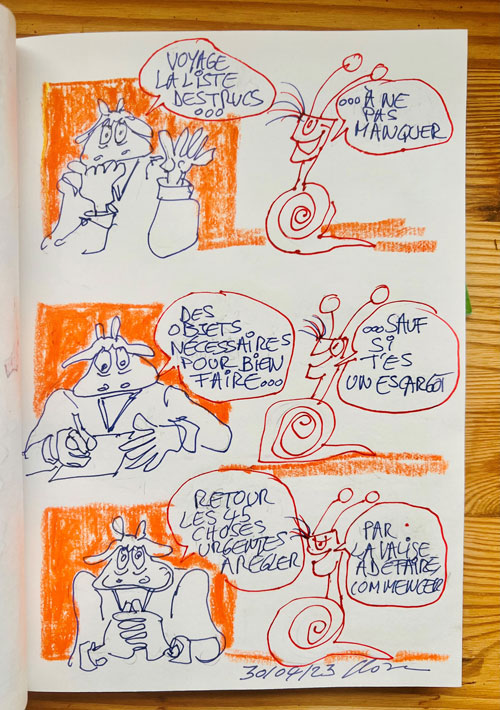 VOYAGE
LA LISTE
DES TRUCS
...
...À NE
PAS
MANQUER
DES
OBJETS
NÉCESSAIRES
POUR BIEN
FAIRE...
...SAUF
SI
T'ES
UN ESCARGOT
RETOUR
LES 45
CHOSES
URGENTES
À RÉGLER
PAR
LA VALISE
À DÉFAIRE
COMMENCER
30/04/23